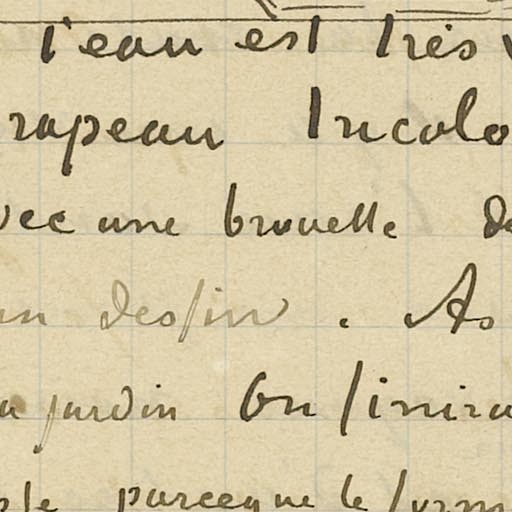 l'eau est très
rapeau tricolo
vec une brouette de
un dessin. As
au jardin On finira
parceque le